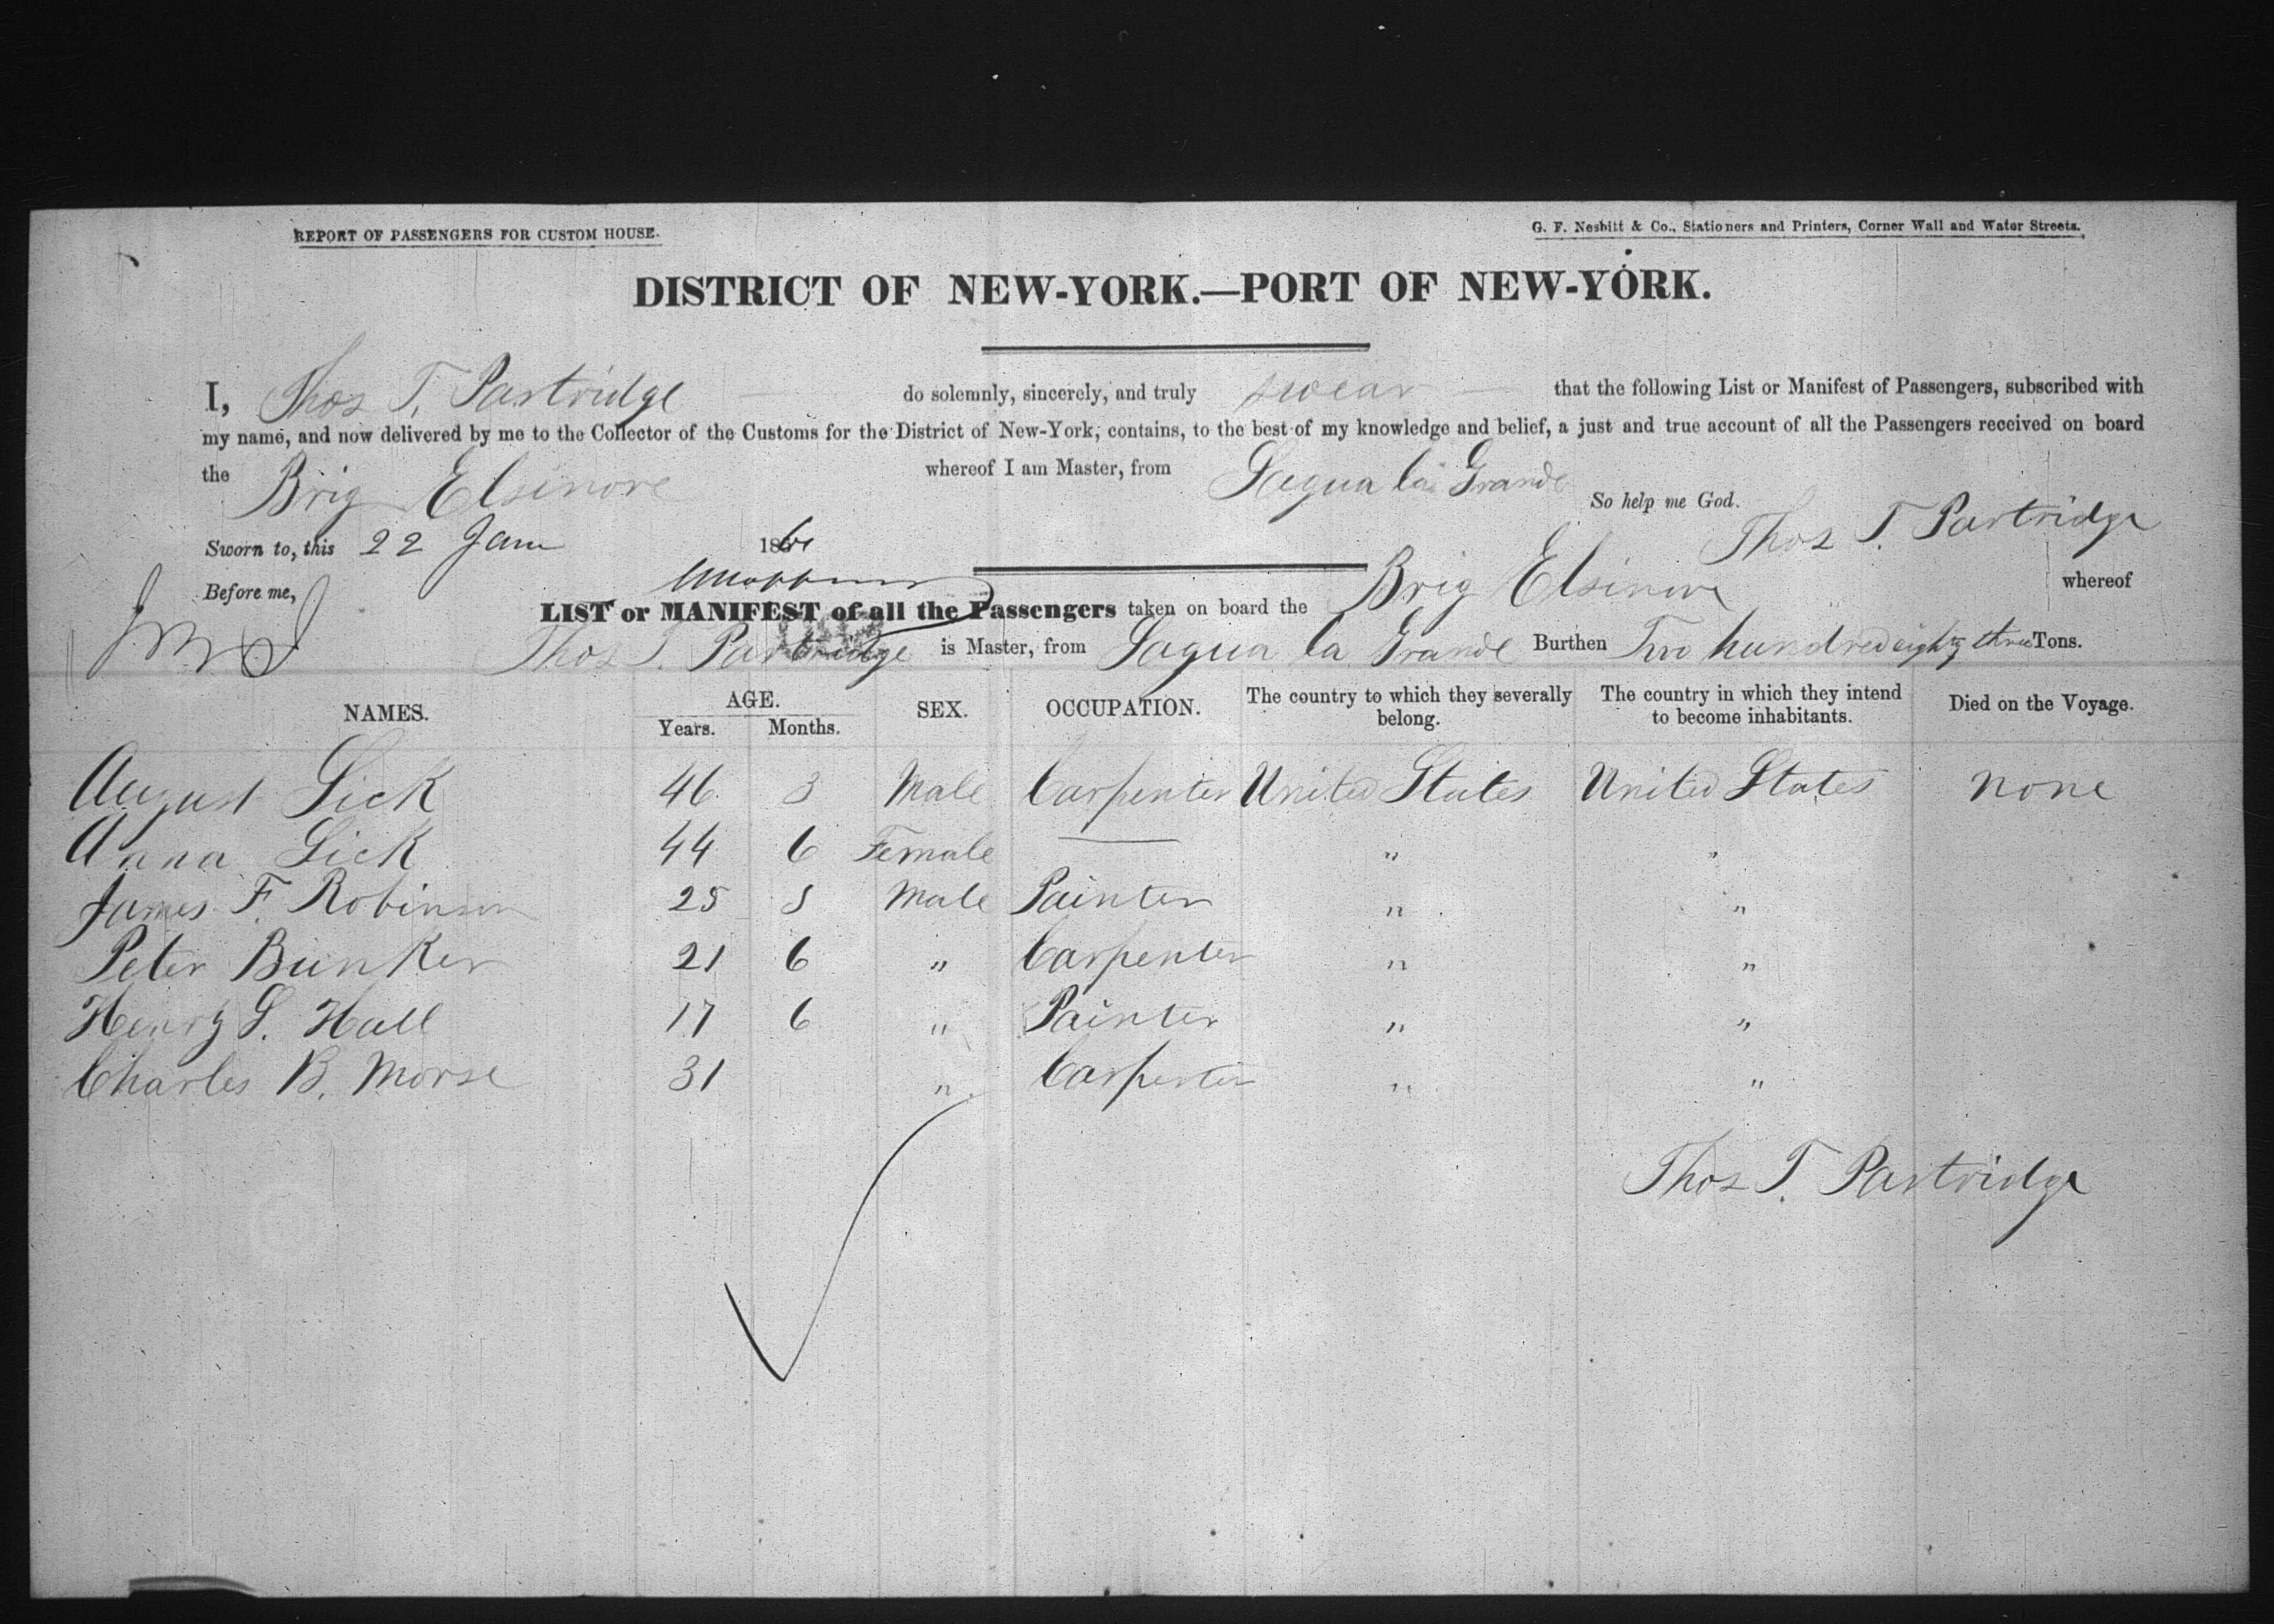 REPORT OF PASSENGERS FOR CUSTOM HOUSE.
G. F. Nesbitt & Co., Stationers and Printers, Corner Wall and Water Streets.
DISTRICT OF NEW-YORK.—PORT OF NEW-YORK.
I, Thos T. Partridge do solemnly, sincerely, and truly swear that the following List or Manifest of Passengers, subscribed with
my name, and now delivered by me to the Collector of the Customs for the District of New-York, contains, to the best of my knowledge and belief, a just and true account of all the Passengers received on board
the Brig Elsinore whereof I am Master, from Sagua la Grande
So help me God.
Sworn to, this 22 Jany 186 Thos T. Partridge
Before me,
LIST or MANIFEST of all the Passengers taken on board the Brig Elsinore whereof
Thos T. Partridge is Master, from Sagua la Grande Burthen Two hundred eighty three Tons.
NAMES. AGE. Years. Months. SEX. OCCUPATION. The country to which they severally belong. The country in which they intend to become inhabitants. Died on the Voyage.
August Sick 46 3 Male Carpenter United States United States none
Anna Sick 44 6 Female — " "
James F. Robinson 25 5 Male Painter " "
Peter Bunker 21 6 " Carpenter " "
Henry S. Hall 17 6 " Painter " "
Charles B. Morse 31 " Carpenter " "
Thos T. Partridge